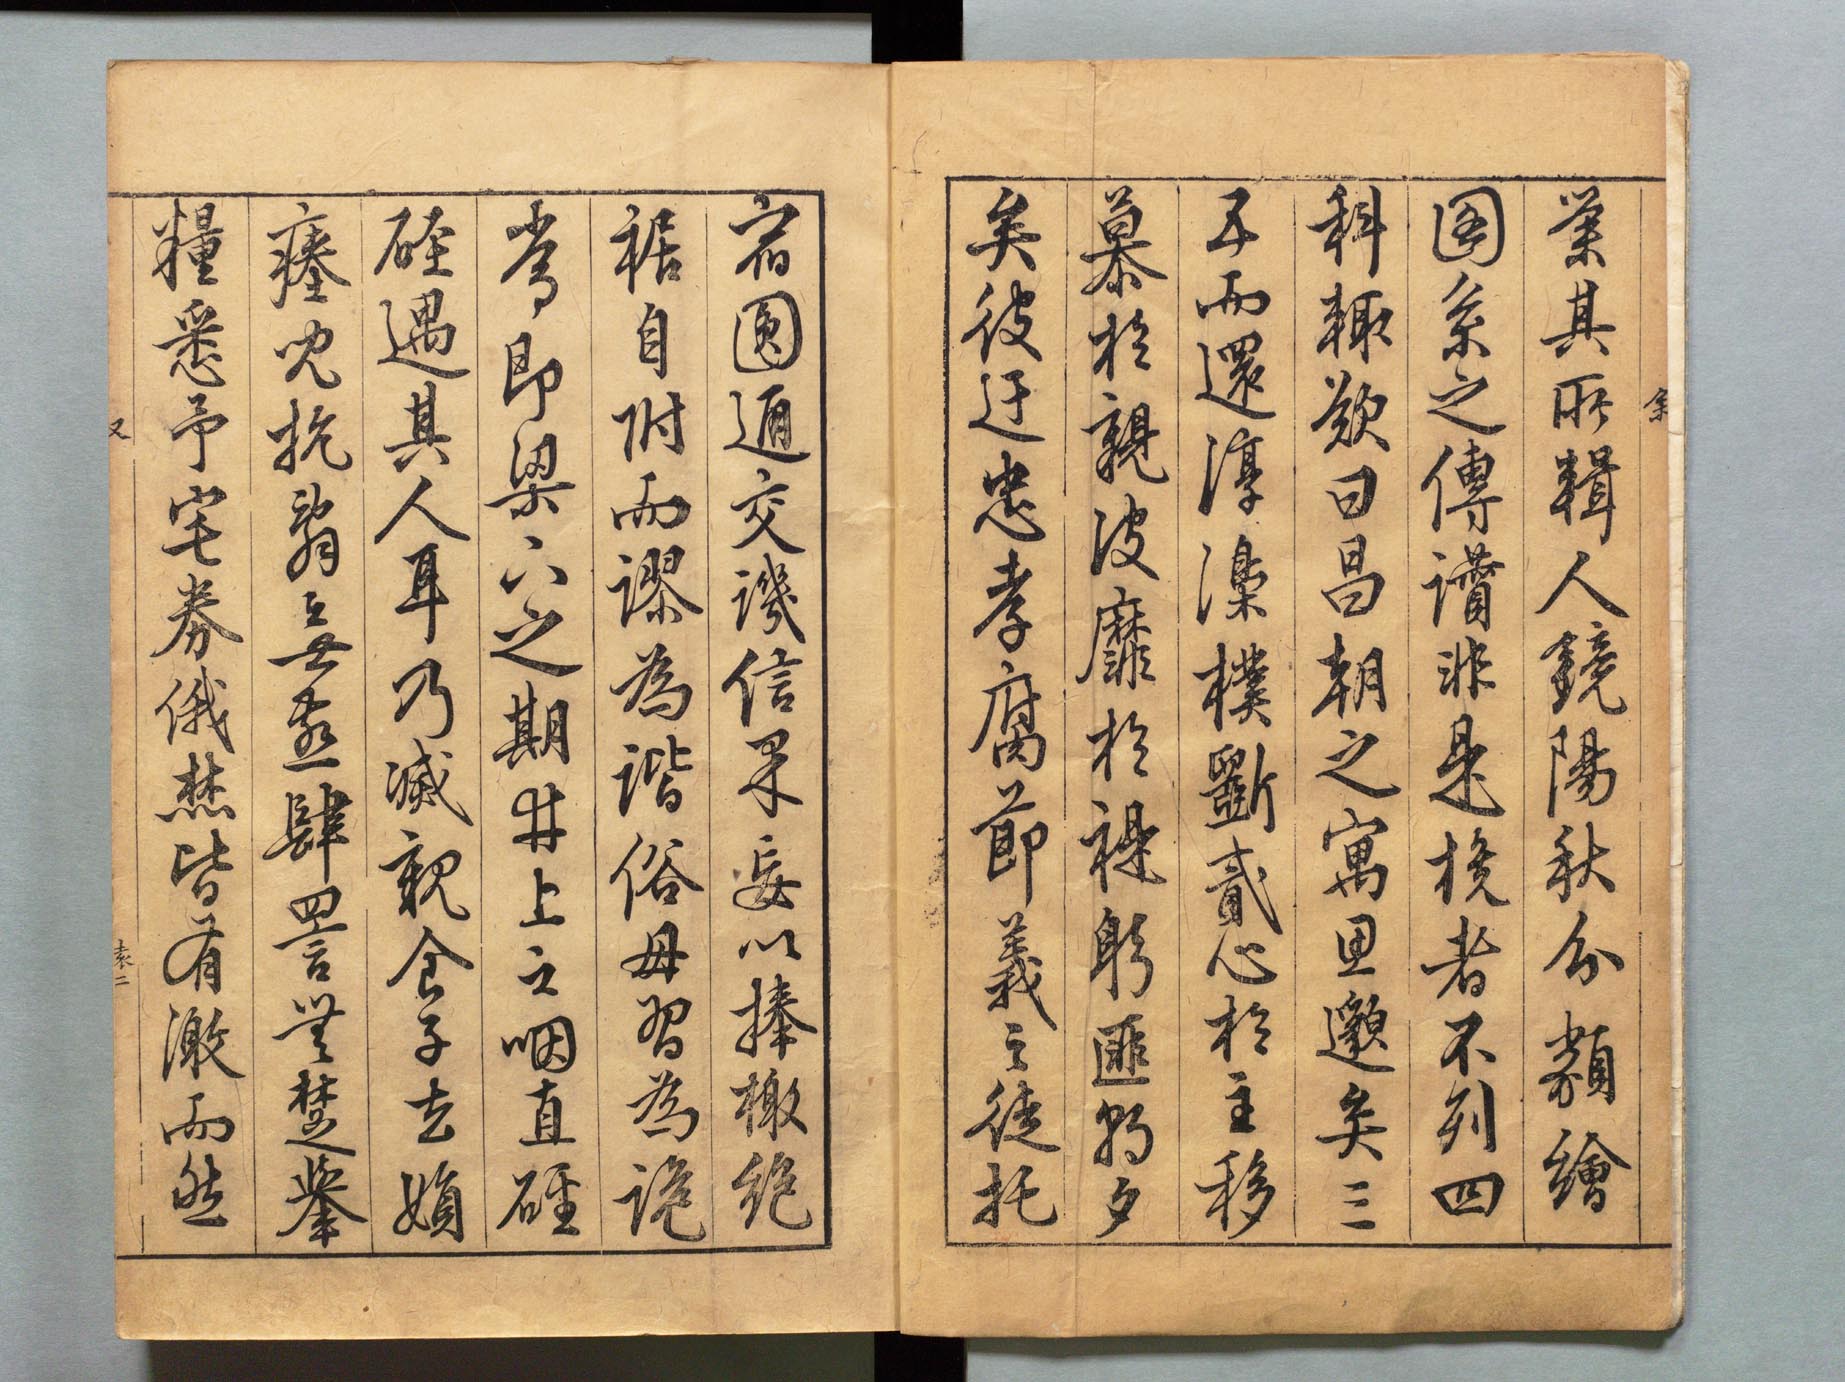 業其所輯人鏡陽秋分類繪
圖系之傳讚非是族者不列四
科輙歎曰昌朝之寓思邈矣三
五而還淳漓樸斲貳心於主移
慕於親波靡於禔躬匪朝夕
矣彼迂忠孝腐節義之徒托
宿圓通交譏信果妄以捧檄絕
裾自附而謬為諧俗毋習為詭
嘗即梁六之期井上之咽直硜
硜遇其人耳乃滅親食子去嬪
瘞兒抗翁
肆詈
楚舉
糧悉予宅券俄焚皆有激而然